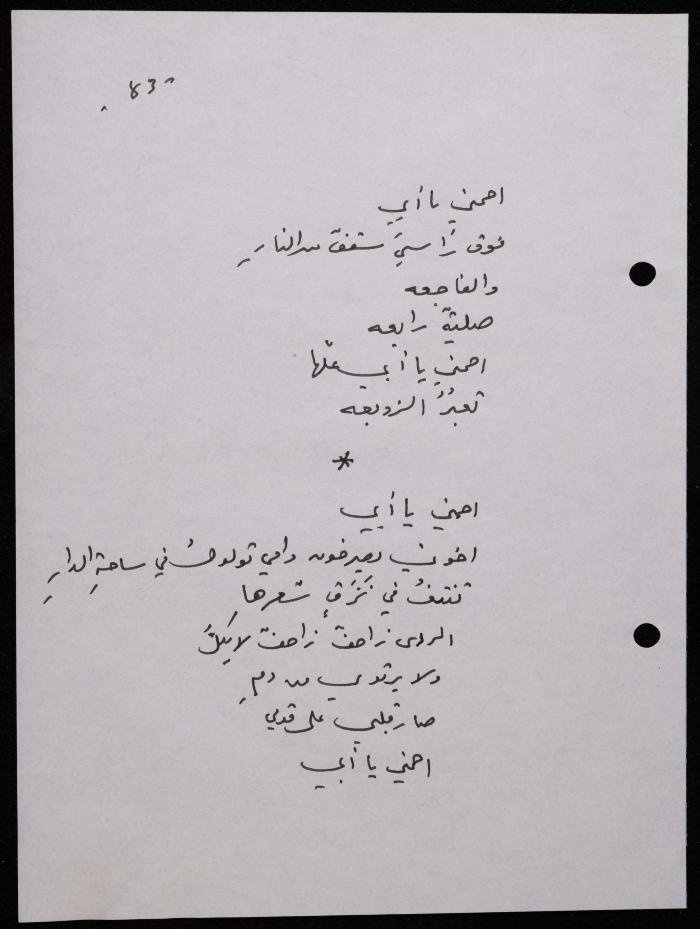 - 83 -
احمني يا أبي
فوق رأسيَ سقفٌ من النارِ
والفاجعه
صليةٌ رابعه
احمني يا أبي علّها
تعبُرُ الزوبعه
*
احمني يا أبي
اخوتي يصرخون وامي تولولُ في ساحةِ الدارِ
تنتفُ في نَزَقٍ شعرها
الردى زاحفٌ زاحفٌ لا يَكلُّ
ولا يرتوي من دمٍ
صار قلبي على قدمي
احمني يا أبي